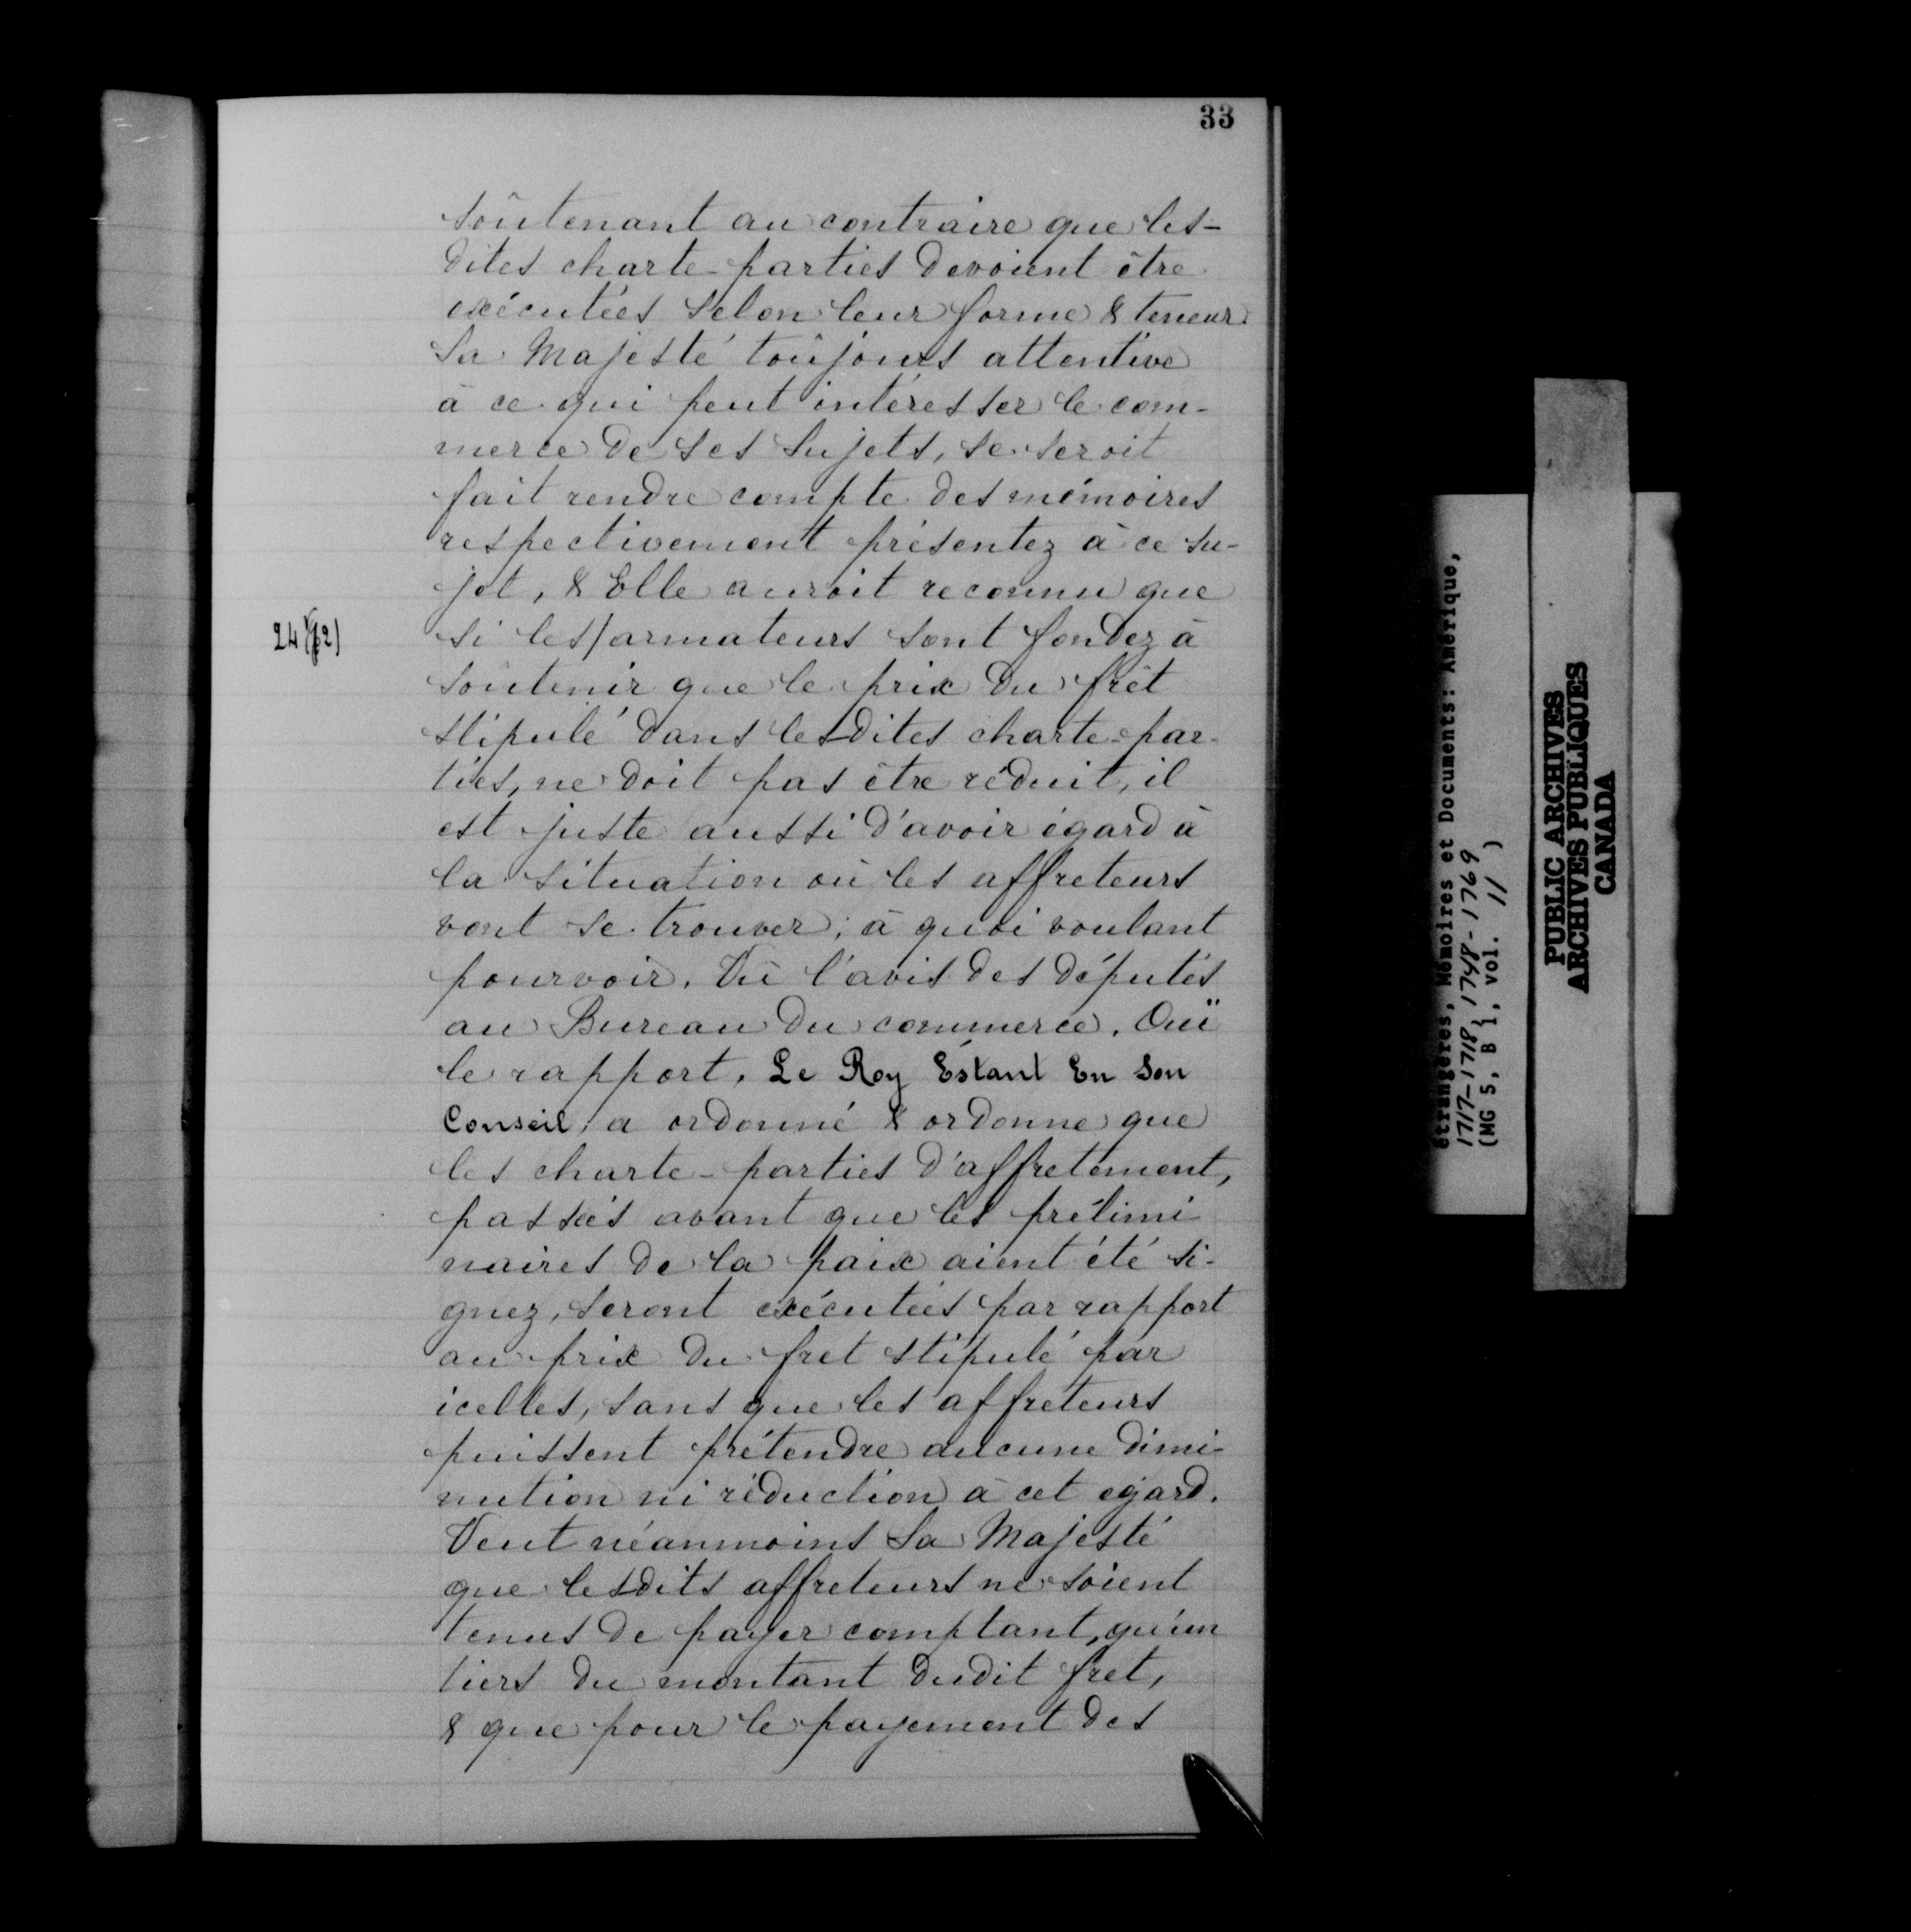 33
soûtenant au contraire que les-
dites charte-parties devoient être
exécutées selon leur forme & teneur
Sa Majesté toûjours attentive
à ce qui peut intéresser le com-
merce de ses sujets, se seroit
fait rendre compte des mémoires
respectivement présentez à ce su-
jet, & Elle auroit reconnu que
si les/armateurs sont fondez à
soûtenir que le prix du frêt
stipulé dans lesdites charte-par-
ties, ne doit pas être réduit, il
est juste aussi d'avoir égard à
la situation où les affreteurs
vont se trouver; à quoi voulant
pourvoir. Vû l'avis des députés
au Bureau du commerce. Ouï
le rapport. Le Roy Éstant En Son
Conseil, a ordonné & ordonne que
les charte-parties d'affretement,
passées avant que les prélimi
naires de la paix aient été si-
gnez, seront exécutées par rapport
au prix du fret stipulé par
icelles, sans que les affreteurs
puissent prétendre aucune dimi-
nution ni réduction à cet egard.
Veut néanmoins Sa Majesté
que lesdits affreteurs ne soient
tenus de payer comptant, qu'un
tiers du montant dudit fret,
& que pour le payement des
étrangères, Mémoires et Documents: Amérique,
1717-1718, 1748-1769
(MG 5, B 1, vol. 11 )
PUBLIC ARCHIVES
ARCHIVES PUBLIQUES
CANADA